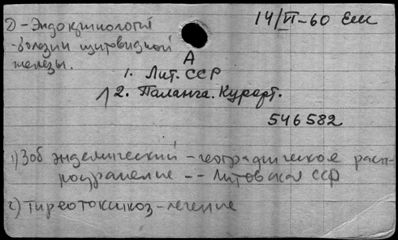 Д - Эндокринология
14/VI-60 Ем
- болезни щитовидной
железы.
А
1. Лит. ССР
2. Паланга. Курорт.
546582
1) Зоб эндемический - географическое расп-
ространение -- Литовская ССР
2) Тиреотоксикоз - лечение